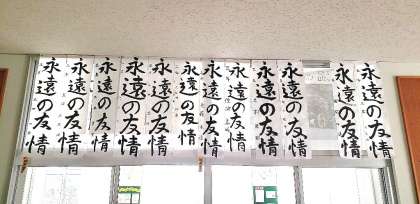 永遠の友情
永遠の友情
永遠の友情
永遠の友情
永遠の友情
永遠の友情
永遠の友情
永遠の友情
永遠の友情
永遠の友情
永遠の友情
永遠の友情